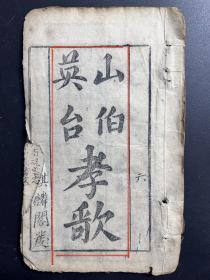 山伯
英台
孝歌
麟閣
六